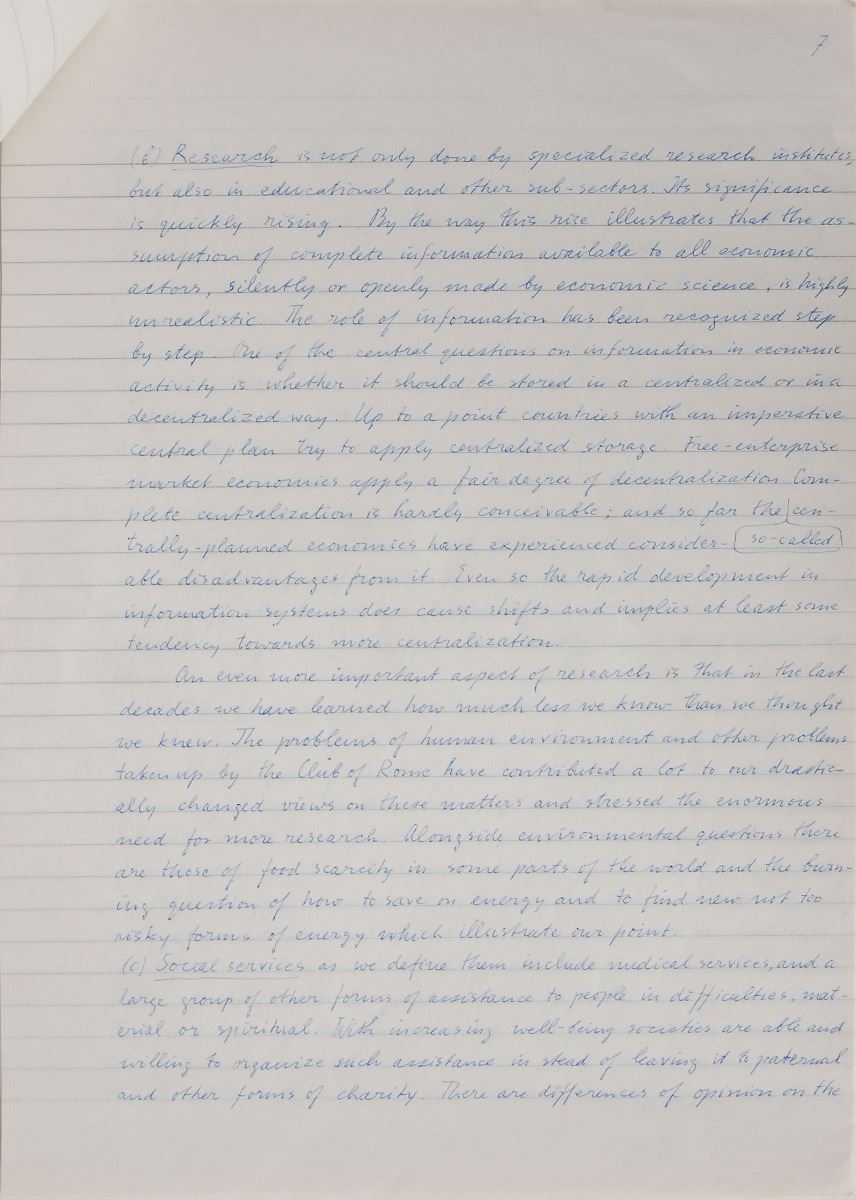 7
(b) Research is not only done by specialized research institutes,
but also in educational and other sub-sectors. Its significance
is quickly rising. By the way this rise illustrates that the as-
sumption of complete information available to all economic
actors, silently or openly made by economic science, is highly
unrealistic. The role of information has been recognized step
by step. One of the central questions on information in economic
activity is whether it should be stored in a centralized or in a
decentralized way. Up to a point countries with an imperative
central plan try to apply centralized storage. Free-enterprise
market economies apply a fair degree of decentralization. Com-
plete centralization is hardly conceivable; and so far the cen-
trally-planned economies have experienced consider- so-called
able disadvantages from it. Even so the rapid development in
information systems does cause shifts and implies at least some
tendency towards more centralization.
An even more important aspect of research is that in the last
decades we have learned how much less we know than we thought
we knew. The problems of human environment and other problems
taken up by the Club of Rome have contributed a lot to our drastic-
ally changed views on these matters and stressed the enormous
need for more research. Alongside environmental questions there
are those of food scarcity in some parts of the world and the burn-
ing question of how to save on energy and to find new not too
risky forms of energy which illustrate our point.
(c) Social services as we define them include medical services, and a
large group of other forms of assistance to people in difficulties, mat-
erial or spiritual. With increasing well-being societies are able and
willing to organize such assistance in stead of leaving it to paternal
and other forms of charity. There are differences of opinion on the